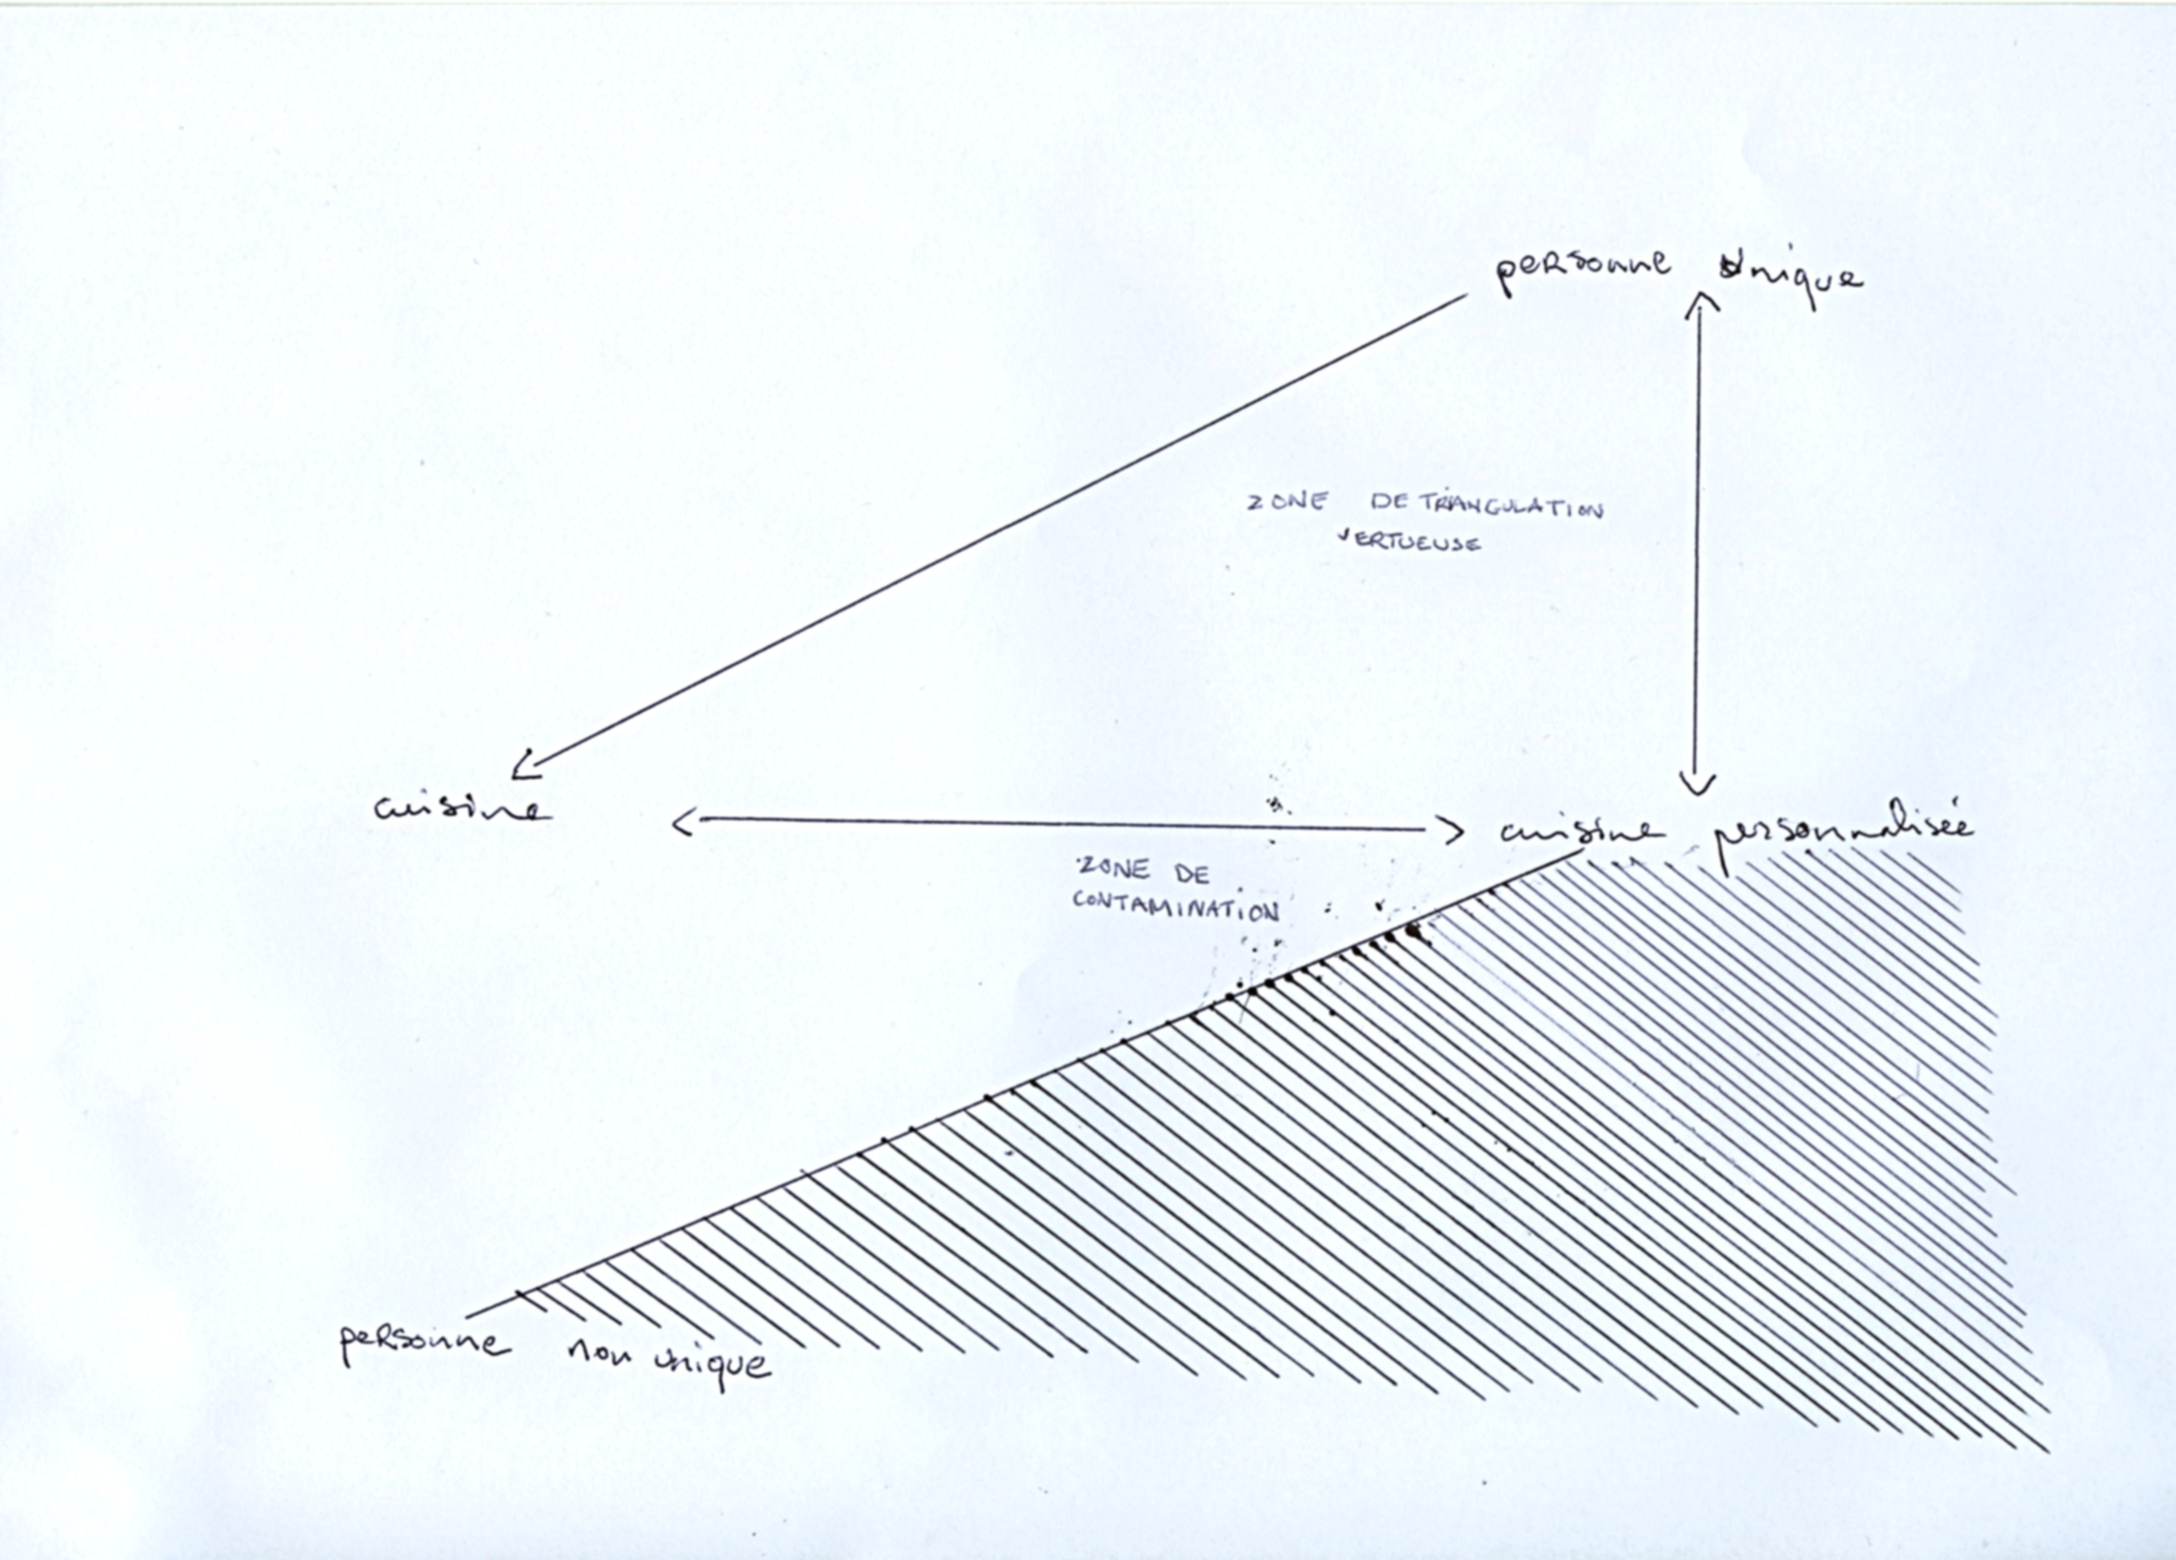 personne unique
ZONE DE TRIANGULATION
VERTUEUSE
cuisine
cuisine personnalisée
ZONE DE
CONTAMINATION
personne non unique